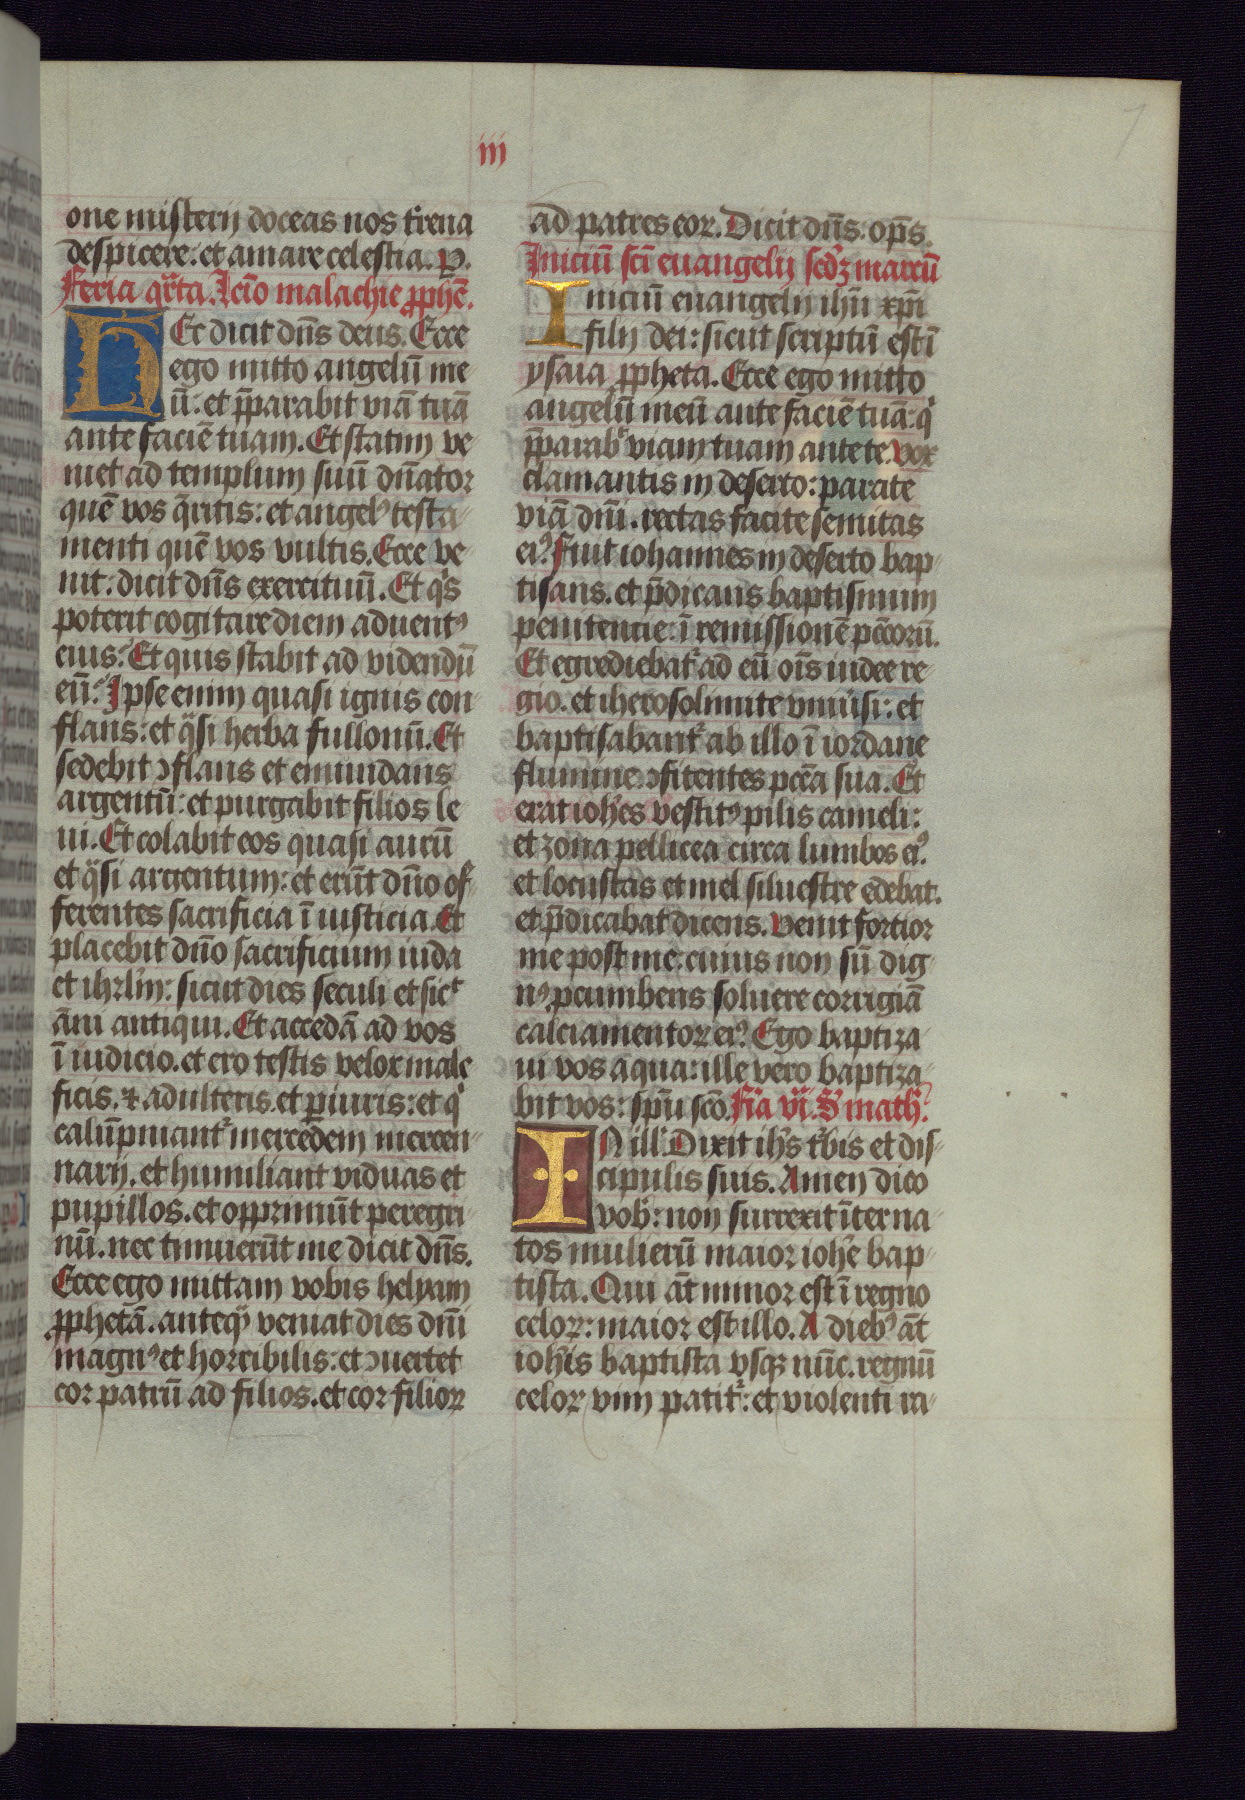 iii
7
one misterij doceas nos t'rena
despicere: et amare celestia. P.
Feria qrta. lcio malachie pphē.
Hec dicit dn̄s deus. Ecce
ego mitto angelū me
ū: et p̄parabit viā tuā
ante faciē tuam. Et statim ve-
niet ad templum suū dn̄ator
quē vos q̄ritis: et angelꝰ testa-
menti quē vos vultis. Ecce ve-
nit: dicit dn̄s exercituū. Et qͥs
poterit cogitare diem aduentꝰ
eius? Et quis stabit ad videndū
eū? Ipse enim quasi ignis con-
flans: et qͣsi herba fullonū. Et
sedebit ↄflans et emundans
argentū: et purgabit filios le
ui. Et colabit eos quasi aurū
et qͣsi argentum: et erūt dn̄o of-
ferentes sacrificia ī iusticia. Et
placebit dn̄o sacrificium iuda
et ihrl'm: sicut dies seculi et sict
āni antiqui. Et accedā ad vos
ī iudicio. et ero testis velox male
ficis. ⁊ adulteris. et piuris: et qͥ
calūpniantͬ mercedem mercen-
narij. et humiliant viduas et
pupillos. et opprimūt peregri-
nū. nec timuerūt me dicit dn̄s.
Ecce ego mittam vobis helyam
ꝓphetā. anteqͣ veniat dies dn̄i
magnꝰ et horribilis: et ↄuertet
cor patrū ad filios. et cor filioꝝ
ad patres eoꝝ. Dicit dn̄s. op̄s.
Iniciū sc̄i euangelij scd'ꝫ marcū
Iniciū euangelij ihū xp̄i
filij dei: sicut scriptū est ī
ysaia ꝓpheta. Ecce ego mitto
angelū meū ante faciē tuā: qͥ
p̄parabͭ viam tuam ante te. vox
clamantis in deserto: parate
viā dn̄i. rectas facite semitas
eiꝰ. Fuit iohannes in deserto bap-
tisans. et p̄dicans baptismum
penitencie: ī remissionē pccorū.
Et egrediebatͬ ad eū ōis iudee re-
gio. et iherosolimite vniūsi: et
baptisabantͬ ab illo ī iordane
flumine. ↄfitentes pccā sua. Et
erat ioh'es vestitꝰ pilis cameli:
et zona pellicea circa lumbos eiꝰ.
et locustas et mel siluestre edebat.
et p̄dicabat dicens. Venit fortior
me post me. cuius non sū dig-
nꝰ ꝓcumbens soluere corrigiā
calciamentoꝝ eiꝰ. Ego baptiza-
ui vos aqua: ille vero baptiza-
bit vos: sp̄u scō. Fīa vi. S' math'.
IN ill'. Dixit ih's t'bis et dis-
cipulis suis. Amen dico
vob': non surrexit īter na-
tos mulierū maior ioh'e bap-
tista. Qui āt minor est ī regno
celoꝝ: maior est illo. A diebꝰ āt
ioh'is baptista vsqꝫ nūc. regnū
celoꝝ vim patitͬ: et violenti ra-